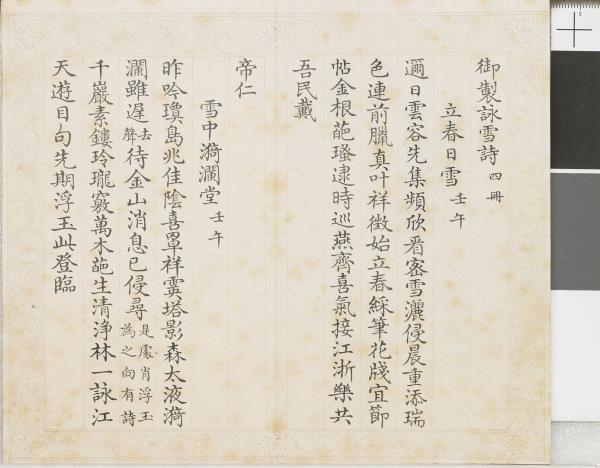 御製詠雪詩 四冊
立春日雪 壬午
邇日雲容先集頻欣看密雪灑侵晨重添瑞
色連前臘真叶祥徵始立春綵筆花牋宜節
帖金根葩瑵逮時巡燕齊喜氣接江浙樂共
吾民戴
帝仁
雪中漪瀾堂 壬午
昨吟瓊島兆佳陰喜罩祥霙塔影森太液漪
瀾雖遲去聲待金山消息已侵尋是處肖浮玉為之向有詩
千巖素鏤玲瓏竅萬木葩生清淨林一詠江
天遊目句先期浮玉此登臨